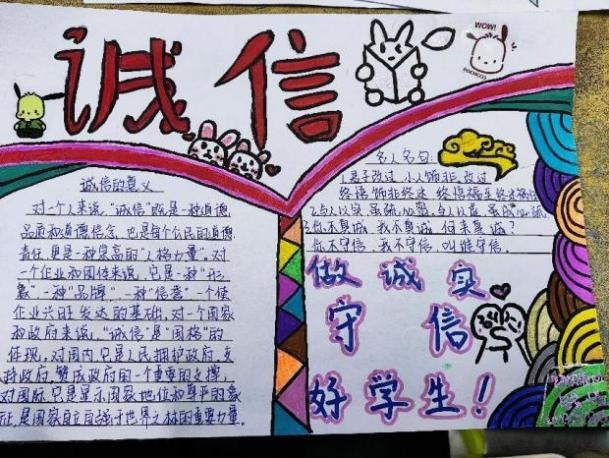 诚信
WOW!
POCHACCO
诚信的意义
对一个人来说,"诚信"既是一种道德
品质和道德信念,也是每个公民的道德
责任,更是一种崇高的"人格力量"。对
一个企业和团体来说,它是一种"形
象",一种"品牌",一种"信誉"一个使
企业兴旺发达的基础,对一个国家
和政府来说,"诚信"是"国格"的
体现,对国内,它是人民拥护政府,支
持政府,赞成政府的一个重要的支撑,
对国际,它是显示国家地位和尊严的象
征,是国家自立自强于世界之林的重要力量。
名人名句:
1.君子改过,小人饰非,改过
终悟,饰非终迷,终悟福至
2.与人以实,虽疏必密,与人以虚,虽
3.你不真诚,我不真诚,何来真诚?
你不守信,我不守信,叫谁守信。
做诚实
守信
好学生!